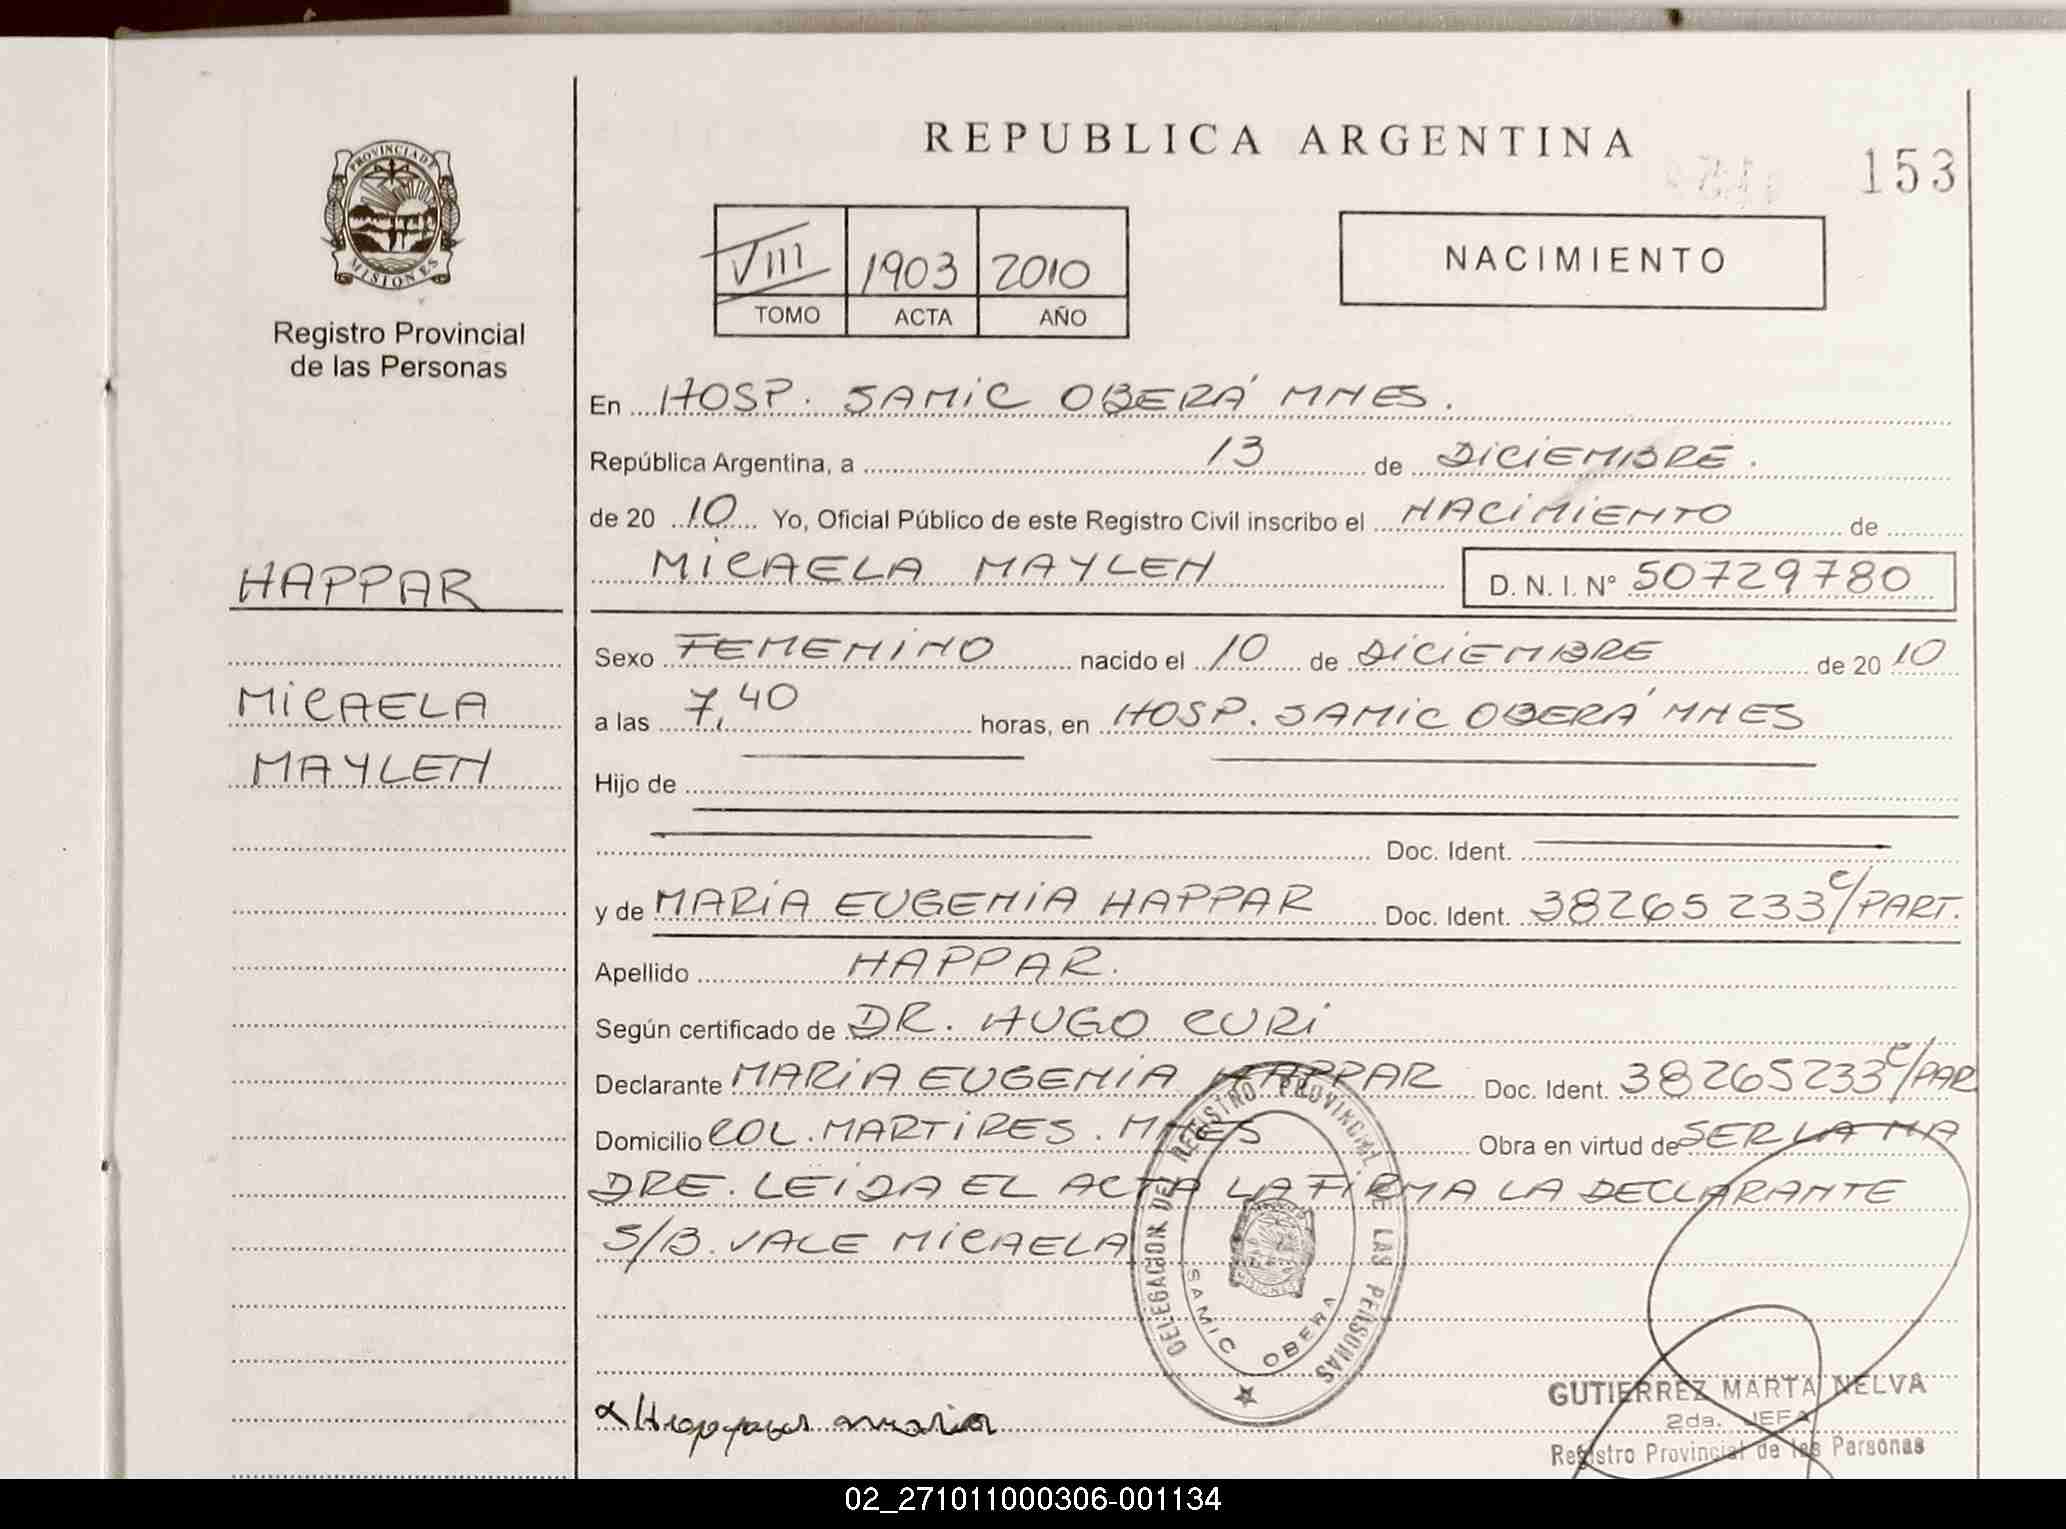 REPUBLICA ARGENTINA
153
PROVINCIA DE
MISIONES
Registro Provincial
de las Personas
VIII 1903 2010
TOMO ACTA AÑO
NACIMIENTO
En HOSP. SAMIC OBERÁ MNES.
República Argentina, a 13 de DICIEMBRE.
de 20 10 Yo, Oficial Público de este Registro Civil inscribo el NACIMIENTO de
MICAELA MAYLEN D. N. I. N° 50729780
HAPPAR
MICAELA
MAYLEN
Sexo FEMENINO nacido el 10 de DICIEMBRE de 20 10
a las 7,40 horas, en HOSP. SAMIC OBERÁ MNES
Hijo de
Doc. Ident.
y de MARIA EUGENIA HAPPAR Doc. Ident. 38265233 c/PART.
Apellido HAPPAR.
Según certificado de DR. HUGO CURI
Declarante MARIA EUGENIA HAPPAR Doc. Ident. 38265233 c/PAR
Domicilio COL. MARTIRES. MNES Obra en virtud de SER LA MA
DRE. LEIDA EL ACTA LA FIRMA LA DECLARANTE
S/B. VALE MICAELA
DELEGACION DEL REGISTRO PROVINCIAL DE LAS PERSONAS
SAMIC OBERA
Happar maria
GUTIERREZ MARTA NELVA
2da. JEFA
Registro Provincial de las Personas
02_271011000306-001134